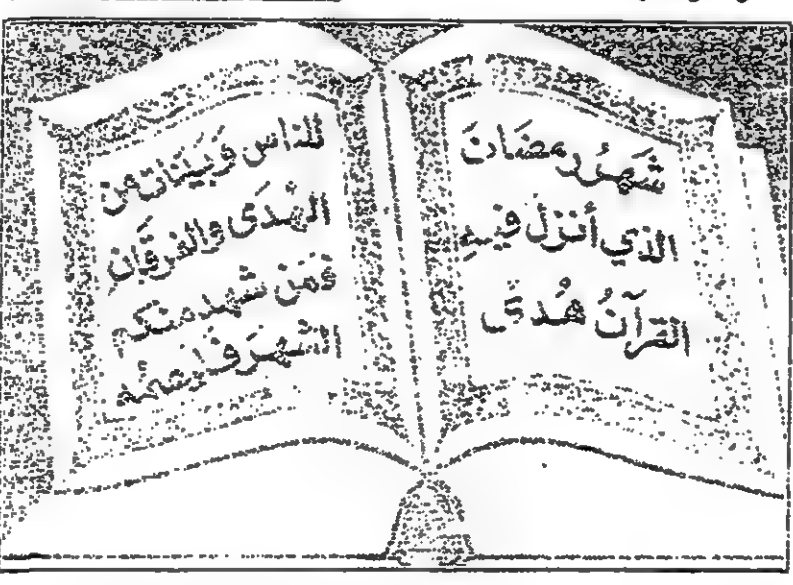 شَهرُ رمضَانَ
الذي أنزلَ فيهِ
القرآنُ هُدًى
للناس وَبَيّنَاتٍ مِنَ
الهُدَى وَالفرقَانِ
وَمَن شهد منكم
الشهرَ فليَصُمْه